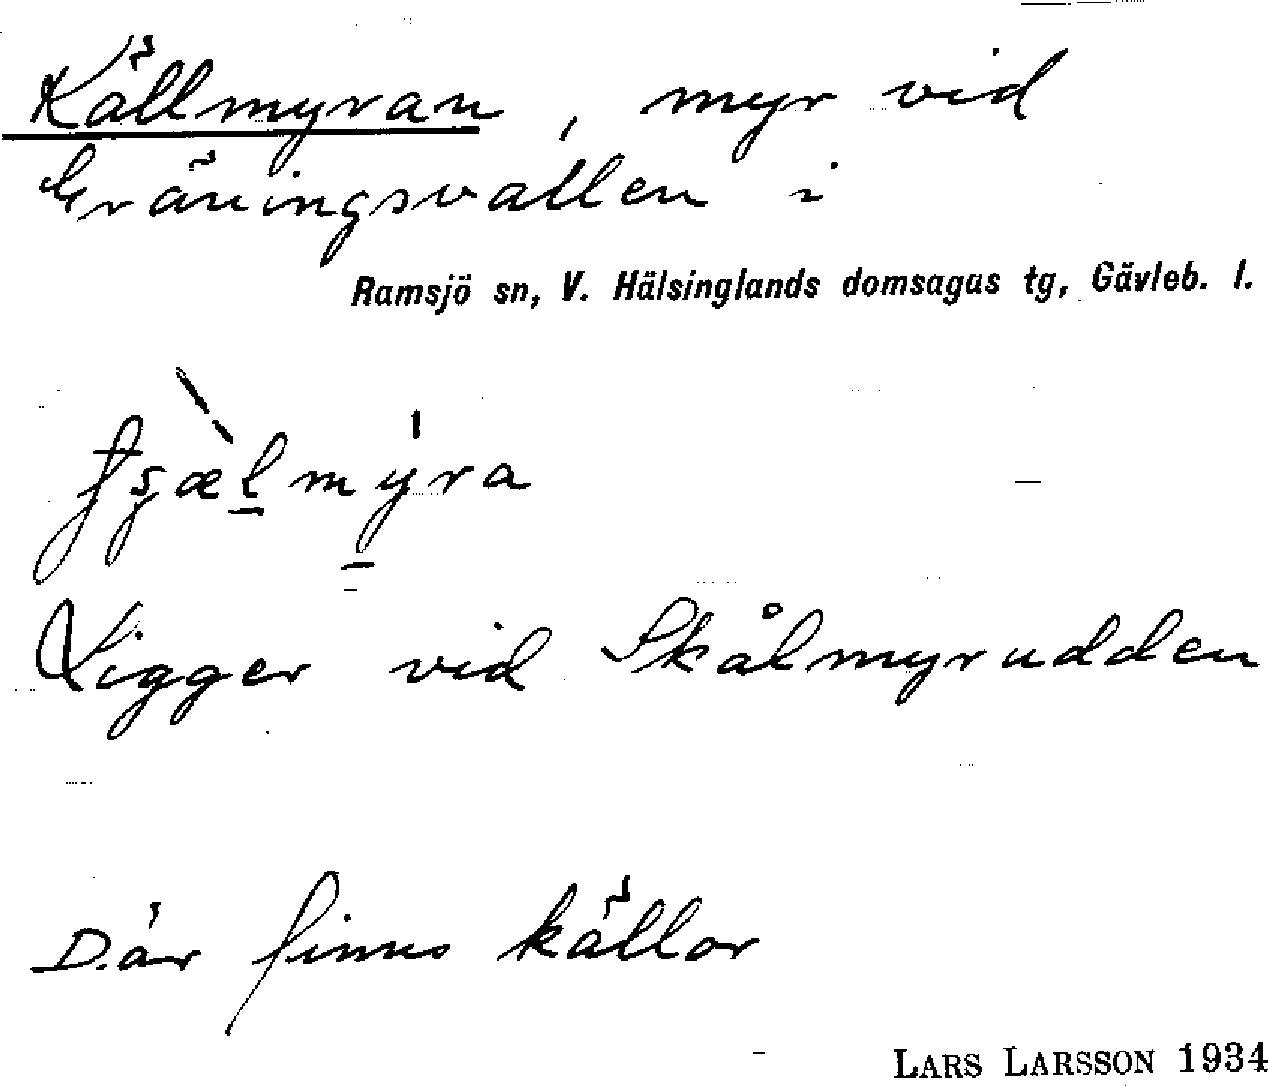 Källmyran, myr vid
Gräningsvallen i
Ramsjö sn, V. Hälsinglands domsagas tg, Gävleb. l.
Ligger vid Skålmyrudden
Där finns källor
LARS LARSSON 1934